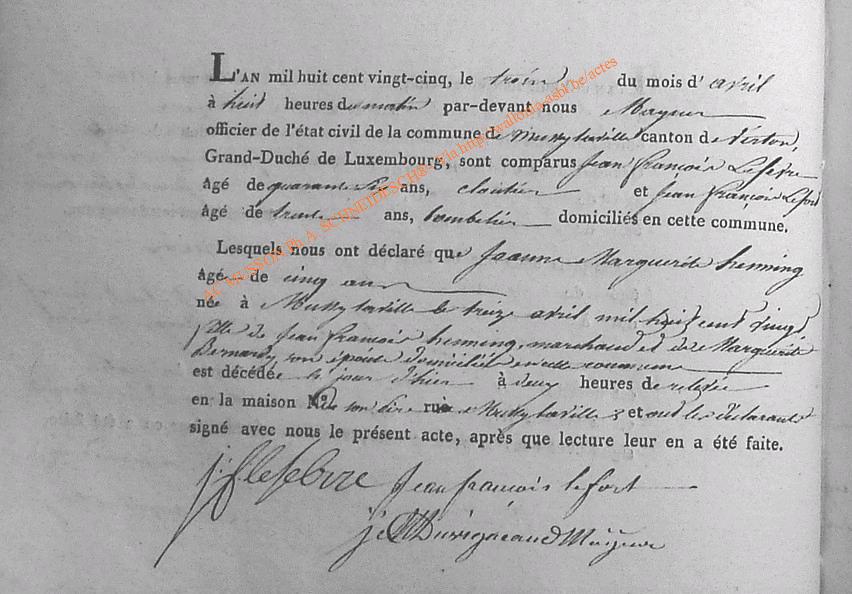 L'AN mil huit cent vingt-cinq, le trois du mois d' avril
à huit heures du matin par-devant nous Mayeur
officier de l'état civil de la commune de Mussylaville canton de Virton,
Grand-Duché de Luxembourg, sont comparus Jean françois Lefebvre
âgé de quarante six ans, cloutier et Jean François Lefort
âgé de trente ans, tombelier domiciliés en cette commune.
Lesquels nous ont déclaré que Jeanne Marguerite henning
âgé de cinq ans
née à Mussy laville le treize avril mil huit cent vingt
fille de Jean françois henning, marchand et de Marguerite
Bernardy son épouse domiciliés en cette commune
est décédée le jour d'hier à deux heures de relevée
en la maison de son père rue Mussy laville & et ont les déclarants
signé avec nous le présent acte, après que lecture leur en a été faite.
j f lefebvre Jean françois lefort
Duvigneaud Mayeur
AC MUSSON Ph A. SCHNEIDESCH & via http://wallonia-asbl.be/actes